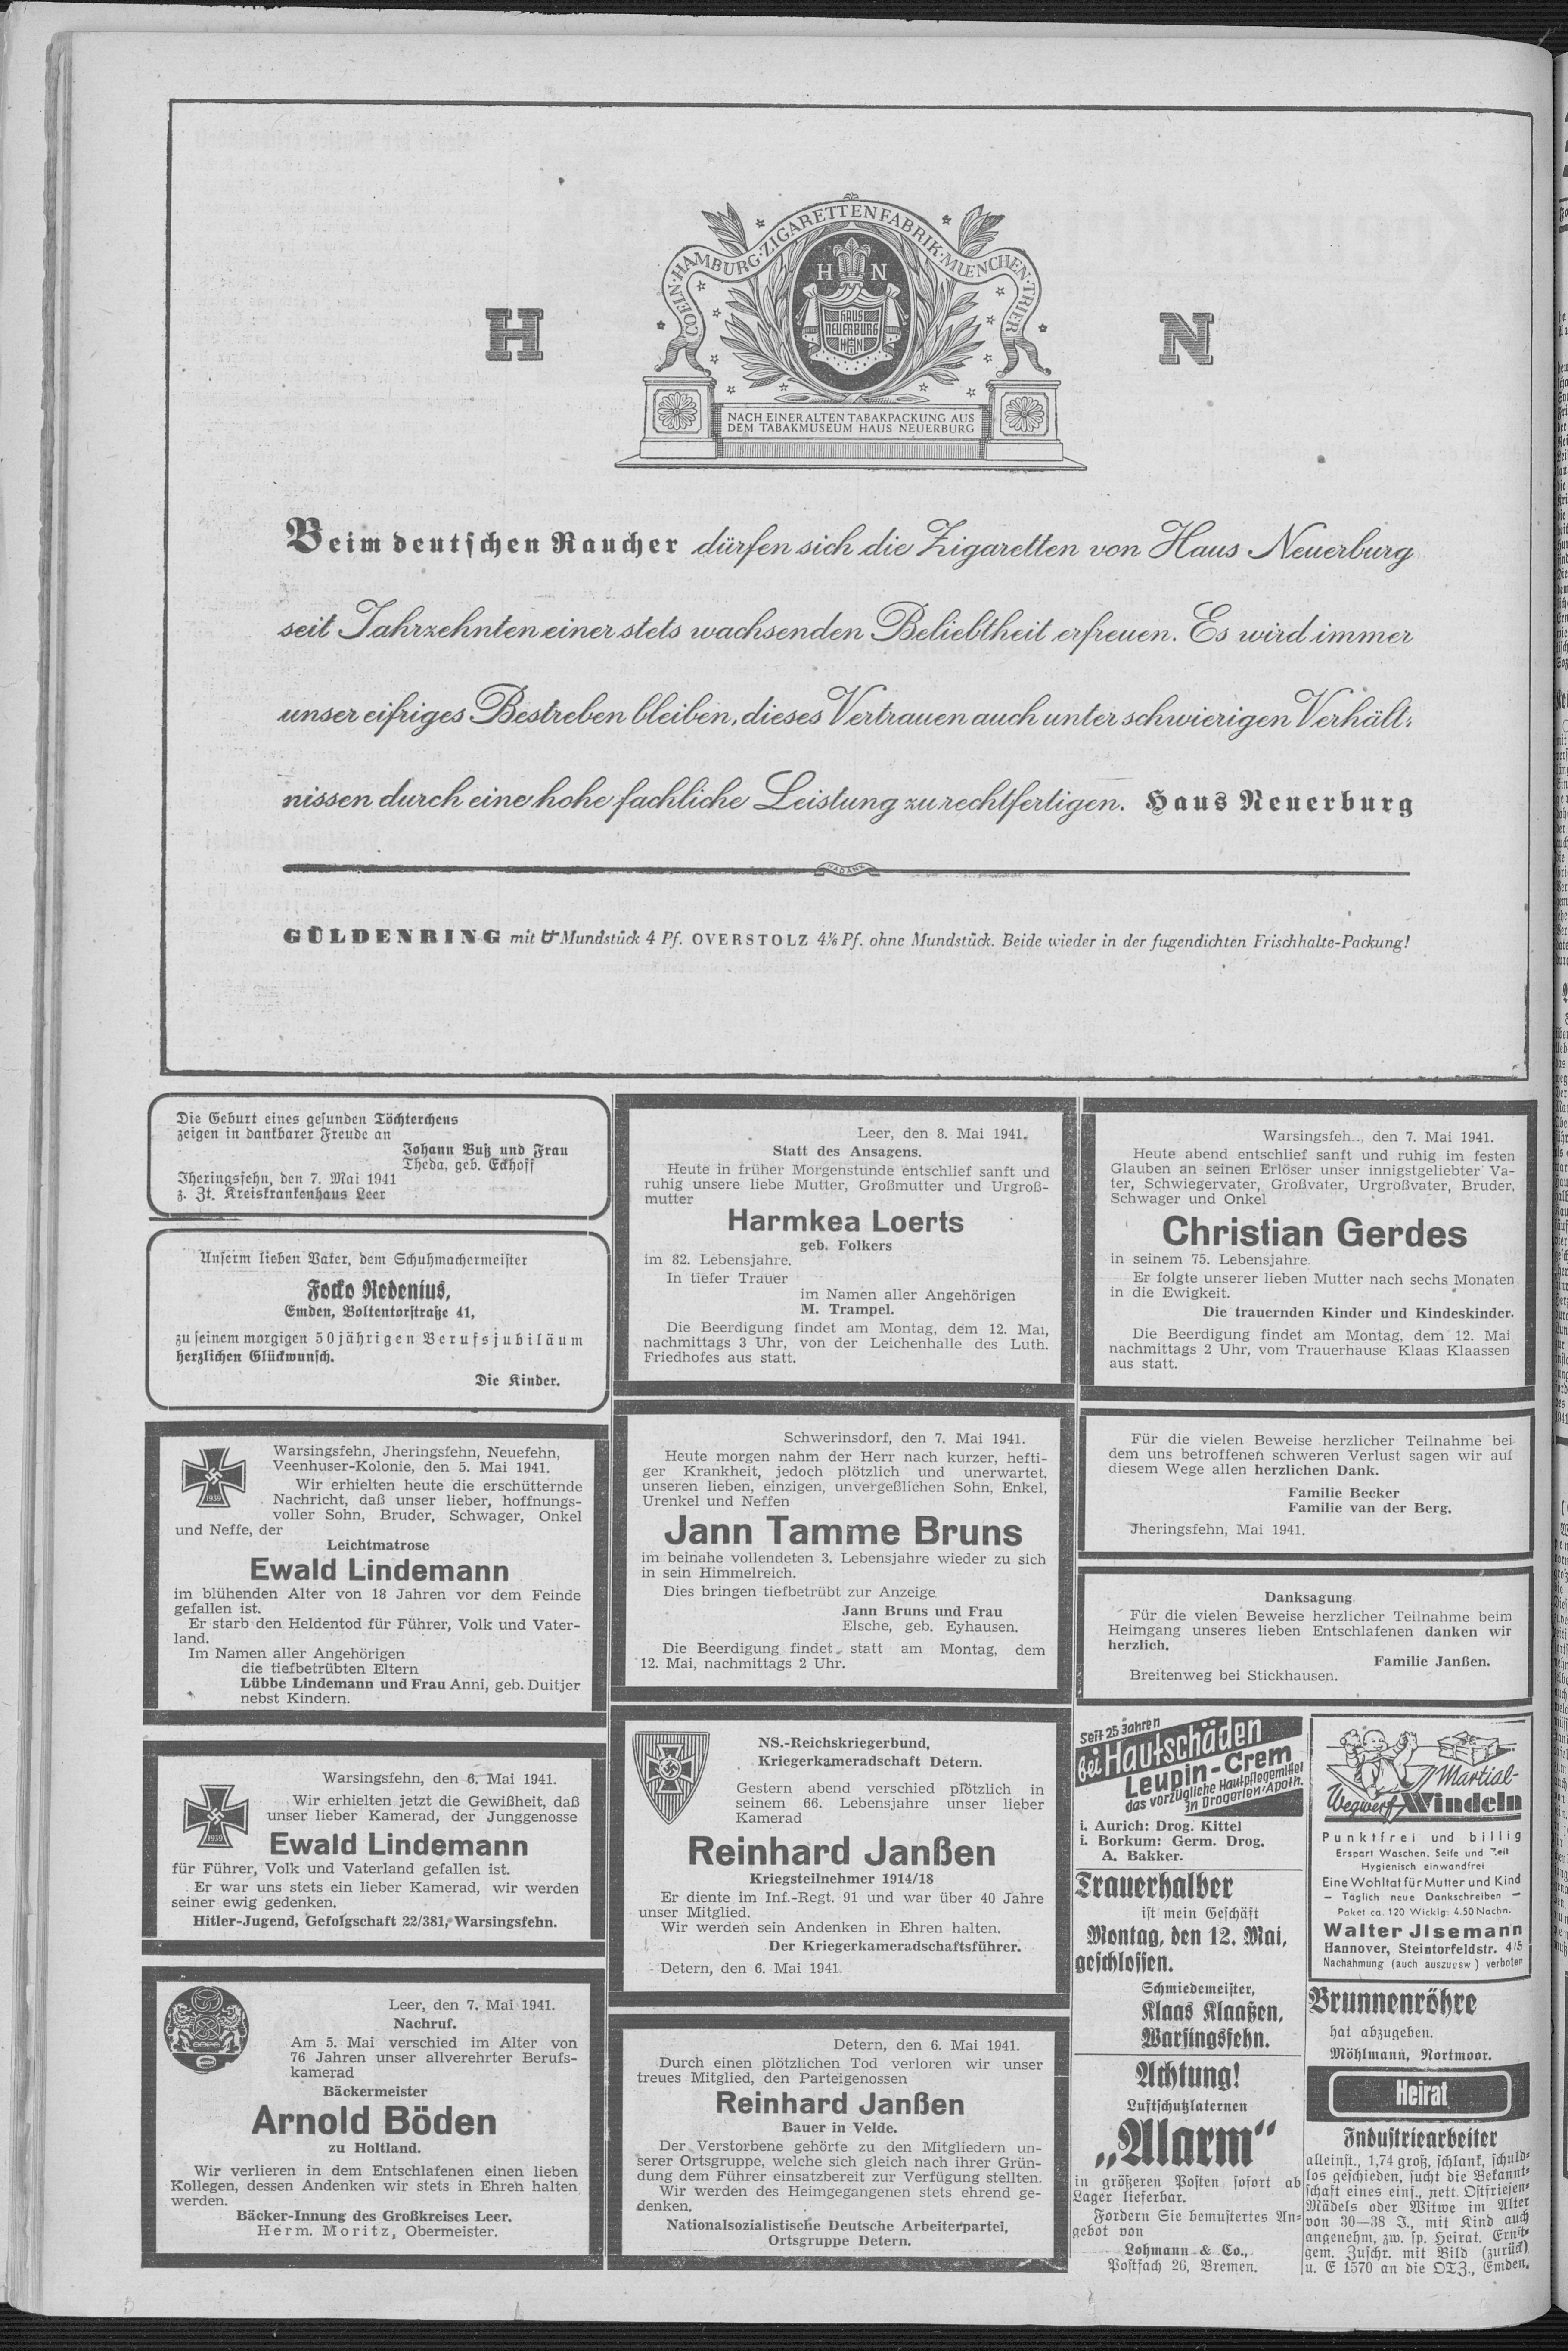 COELN·HAMBURG·ZIGARETTENFABRIK·MUENCHEN·TRIER
H N
HAUS
NEUERBURG
HN
H N
NACH EINER ALTEN TABAKPACKUNG AUS
DEM TABAKMUSEUM HAUS NEUERBURG
Beim deutschen Raucher dürfen sich die Zigaretten von Haus Neuerburg
seit Jahrzehnten einer stets wachsenden Beliebtheit erfreuen. Es wird immer
unser eifriges Bestreben bleiben, dieses Vertrauen auch unter schwierigen Verhält-
nissen durch eine hohe fachliche Leistung zu rechtfertigen. Haus Neuerburg
HADANK
GÜLDENRING mit Mundstück 4 Pf. OVERSTOLZ 4⅙ Pf. ohne Mundstück. Beide wieder in der fugendichten Frischhalte-Packung!
Die Geburt eines gesunden Töchterchens
zeigen in dankbarer Freude an
Johann Buß und Frau
Theda, geb. Eckhoff
Jheringsfehn, den 7. Mai 1941
z. Zt. Kreiskrankenhaus Leer
Unserm lieben Vater, dem Schuhmachermeister
Focko Redenius,
Emden, Boltentorstraße 41,
zu seinem morgigen 50jährigen Berufsjubiläum
herzlichen Glückwunsch.
Die Kinder.
1939
Warsingsfehn, Jheringsfehn, Neuefehn,
Veenhuser-Kolonie, den 5. Mai 1941.
Wir erhielten heute die erschütternde
Nachricht, daß unser lieber, hoffnungs-
voller Sohn, Bruder, Schwager, Onkel
und Neffe, der
Leichtmatrose
Ewald Lindemann
im blühenden Alter von 18 Jahren vor dem Feinde
gefallen ist.
Er starb den Heldentod für Führer, Volk und Vater-
land.
Im Namen aller Angehörigen
die tiefbetrübten Eltern
Lübbe Lindemann und Frau Anni, geb. Duitjer
nebst Kindern.
1939
Warsingsfehn, den 6. Mai 1941.
Wir erhielten jetzt die Gewißheit, daß
unser lieber Kamerad, der Junggenosse
Ewald Lindemann
für Führer, Volk und Vaterland gefallen ist.
Er war uns stets ein lieber Kamerad, wir werden
seiner ewig gedenken.
Hitler-Jugend, Gefolgschaft 22/381, Warsingsfehn.
Leer, den 7. Mai 1941.
Nachruf.
Am 5. Mai verschied im Alter von
76 Jahren unser allverehrter Berufs-
kamerad
Bäckermeister
Arnold Böden
zu Holtland.
Wir verlieren in dem Entschlafenen einen lieben
Kollegen, dessen Andenken wir stets in Ehreh halten
werden.
Bäcker-Innung des Großkreises Leer.
Herm. Moritz, Obermeister.
Leer, den 8. Mai 1941.
Statt des Ansagens.
Heute in früher Morgenstunde entschlief sanft und
ruhig unsere liebe Mutter, Großmutter und Urgroß-
mutter
Harmkea Loerts
geb. Folkers
im 82. Lebensjahre.
In tiefer Trauer
im Namen aller Angehörigen
M. Trampel.
Die Beerdigung findet am Montag, dem 12. Mai,
nachmittags 3 Uhr, von der Leichenhalle des Luth.
Friedhofes aus statt.
Schwerinsdorf, den 7. Mai 1941.
Heute morgen nahm der Herr nach kurzer, hefti-
ger Krankheit, jedoch plötzlich und unerwartet,
unseren lieben, einzigen, unvergeßlichen Sohn, Enkel,
Urenkel und Neffen
Jann Tamme Bruns
im beinahe vollendeten 3. Lebensjahre wieder zu sich
in sein Himmelreich.
Dies bringen tiefbetrübt zur Anzeige
Jann Bruns und Frau
Elsche, geb. Eyhausen.
Die Beerdigung findet statt am Montag, dem
12. Mai, nachmittags 2 Uhr.
NS.-Reichskriegerbund,
Kriegerkameradschaft Detern.
Gestern abend verschied plötzlich in
seinem 66. Lebensjahre unser lieber
Kamerad
Reinhard Janßen
Kriegsteilnehmer 1914/18
Er diente im Inf.-Regt. 91 und war über 40 Jahre
unser Mitglied.
Wir werden sein Andenken in Ehren halten.
Der Kriegerkameradschaftsführer.
Detern, den 6. Mai 1941.
Detern, den 6. Mai 1941.
Durch einen plötzlichen Tod verloren wir unser
treues Mitglied, den Parteigenossen
Reinhard Janßen
Bauer in Velde.
Der Verstorbene gehörte zu den Mitgliedern un-
serer Ortsgruppe, welche sich gleich nach ihrer Grün-
dung dem Führer einsatzbereit zur Verfügung stellten.
Wir werden des Heimgegangenen stets ehrend ge-
denken.
Nationalsozialistische Deutsche Arbeiterpartei,
Ortsgruppe Detern.
Warsingsfeh.., den 7. Mai 1941.
Heute abend entschlief sanft und ruhig im festen
Glauben an seinen Erlöser unser innigstgeliebter Va-
ter, Schwiegervater, Großvater, Urgroßvater, Bruder,
Schwager und Onkel
Christian Gerdes
in seinem 75. Lebensjahre.
Er folgte unserer lieben Mutter nach sechs Monaten
in die Ewigkeit.
Die trauernden Kinder und Kindeskinder.
Die Beerdigung findet am Montag, dem 12. Mai
nachmittags 2 Uhr, vom Trauerhause Klaas Klaassen
aus statt.
Für die vielen Beweise herzlicher Teilnahme bei
dem uns betroffenen schweren Verlust sagen wir auf
diesem Wege allen herzlichen Dank.
Familie Becker
Familie van der Berg.
Jheringsfehn, Mai 1941.
Danksagung.
Für die vielen Beweise herzlicher Teilnahme beim
Heimgang unseres lieben Entschlafenen danken wir
herzlich.
Familie Janßen.
Breitenweg bei Stickhausen.
Seit 25 Jahren
Bei Hautschäden
Leupin-Crem
das vorzügliche Hautpflegemittel
In Drogerien·Apoth.
i. Aurich: Drog. Kittel
i. Borkum: Germ. Drog.
A. Bakker.
Trauerhalber
ist mein Geschäft
Montag, den 12. Mai,
geschlossen.
Schmiedemeister,
Klaas Klaaßen,
Warsingsfehn.
Achtung!
Luftschutzlaternen
„Alarm“
in größeren Posten sofort ab
Lager lieferbar.
Fordern Sie bemustertes An-
gebot von
Lohmann & Co.,
Postfach 26, Bremen.
Martial-
Wegwerf Windeln
Punktfrei und billig
Erspart Waschen, Seife und Zeit
Hygienisch einwandfrei
Eine Wohltat für Mutter und Kind
— Täglich neue Dankschreiben —
Paket ca. 120 Wicklg. 4.50 Nachn.
Walter Jlsemann
Hannover, Steintorfeldstr. 4/5
Nachahmung (auch auszugsw) verboten
Brunnenröhre
hat abzugeben.
Möhlmann, Nortmoor.
Heirat
Industriearbeiter
alleinst., 1,74 groß, schlank, schuld-
los geschieden, sucht die Bekannt-
schaft eines einf., nett. Ostfriesen-
Mädels oder Witwe im Alter
von 30—38 J., mit Kind auch
angenehm, zw. sp. Heirat. Ernst-
gem. Zuschr. mit Bild (zurück)
u. E 1570 an die OTZ., Emden.